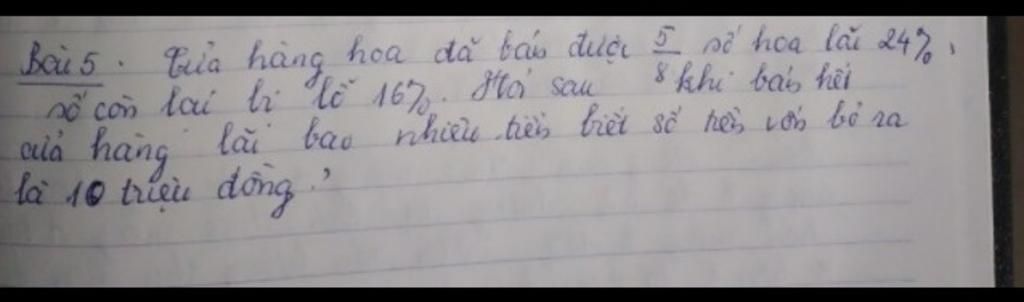 Bài 5. Cửa hàng hoa đã bán được 5/8 số hoa lãi 24%,
số còn lại bị lỗ 16%. Hỏi sau khi bán hết
cửa hàng lãi bao nhiêu tiền biết số tiền vốn bỏ ra
là 10 triệu đồng?